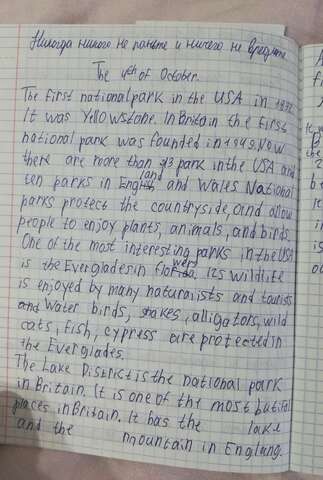 Никогда никого не и ничего не
The 4th of October.
The first national park in the USA in 1872
It was Yellowstone. In Britain the first
national park was founded in 1949. Now
there are more than park in the USA and
ten parks in England and Wales National
parks protect the countryside, and allow
people to enjoy plants, animals, and birds.
One of the most interesting parks in the USA
is the Everglades in Florida. Its wildlife
is enjoyed by many naturalists and tourists
and water birds, snakes, alligators, wild
cats, fish, cypress are protected in
the Everglades.
The Lake District is the national park
in Britain. It is one of the most butiful
places in Britain. It has the lake
and the mountain in England.